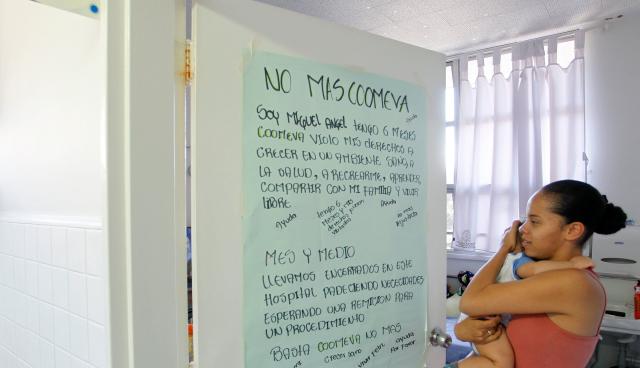 NO MAS COOMEVA
Ayuda
SOY MIGUEL ANGEL TENGO 6 MESES
COOMEVA VIOLO MIS DERECHOS A
CRECER EN UN AMBIENTE SANO, A
LA SALUD, A RECREARME, APRENDER,
COMPARTIR CON MI FAMILIA Y VIVIR
LIBRE.
Ayuda
tengo 6
Meses y mis
derechos fueron
violados
Ayuda
no mas
injusticia
MES Y MEDIO
LLEVAMOS ENCERRADOS EN ESTE
HOSPITAL PADECIENDO NECESIDADES
ESPERANDO UNA REMICION PARA
UN PROCEDIMIENTO
BASTA COOMEVA NO MAS
Crecer sano
Vivir feliz
ayuda
Por Favor